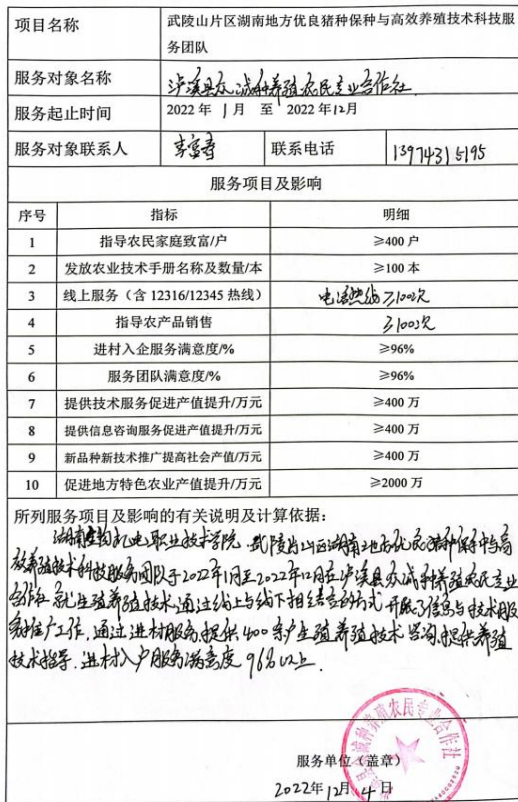 项目名称 武陵山片区湖南地方优良猪种保种与高效养殖技术科技服
务团队
服务对象名称 泸溪县众诚种养殖农民专业合作社
服务起止时间 2022 年 1 月 至 2022 年 12 月
服务对象联系人 李富寿 联系电话 13974315195
服务项目及影响
序号 指标 明细
1 指导农民家庭致富/户 ≥400 户
2 发放农业技术手册名称及数量/本 ≥100 本
3 线上服务（含 12316/12345 热线） 电话热线 ≥100次
4 指导农产品销售 ≥100次
5 进村入企服务满意度/% ≥96%
6 服务团队满意度/% ≥96%
7 提供技术服务促进产值提升/万元 ≥400 万
8 提供信息咨询服务促进产值提升/万元 ≥400 万
9 新品种新技术推广提高社会产值/万元 ≥400 万
10 促进地方特色农业产值提升/万元 ≥2000 万
所列服务项目及影响的有关说明及计算依据：
湖南生物机电职业技术学院 武陵山片区湖南地方优良猪种保种与高
效养殖技术科技服务团队于2022年1月至2022年12月在泸溪县众诚种养殖农民专业
合作社就生殖养殖技术,通过线上与线下相结合的方式,开展了信息与技术服
务推广工作,通过进村服务,提供400余户生殖养殖技术咨询,提供养殖
技术指导,进村入户服务满意度 96%以上.
诚种养殖农民专业合作社
服务单位（盖章）
2022年 12 月 4 日